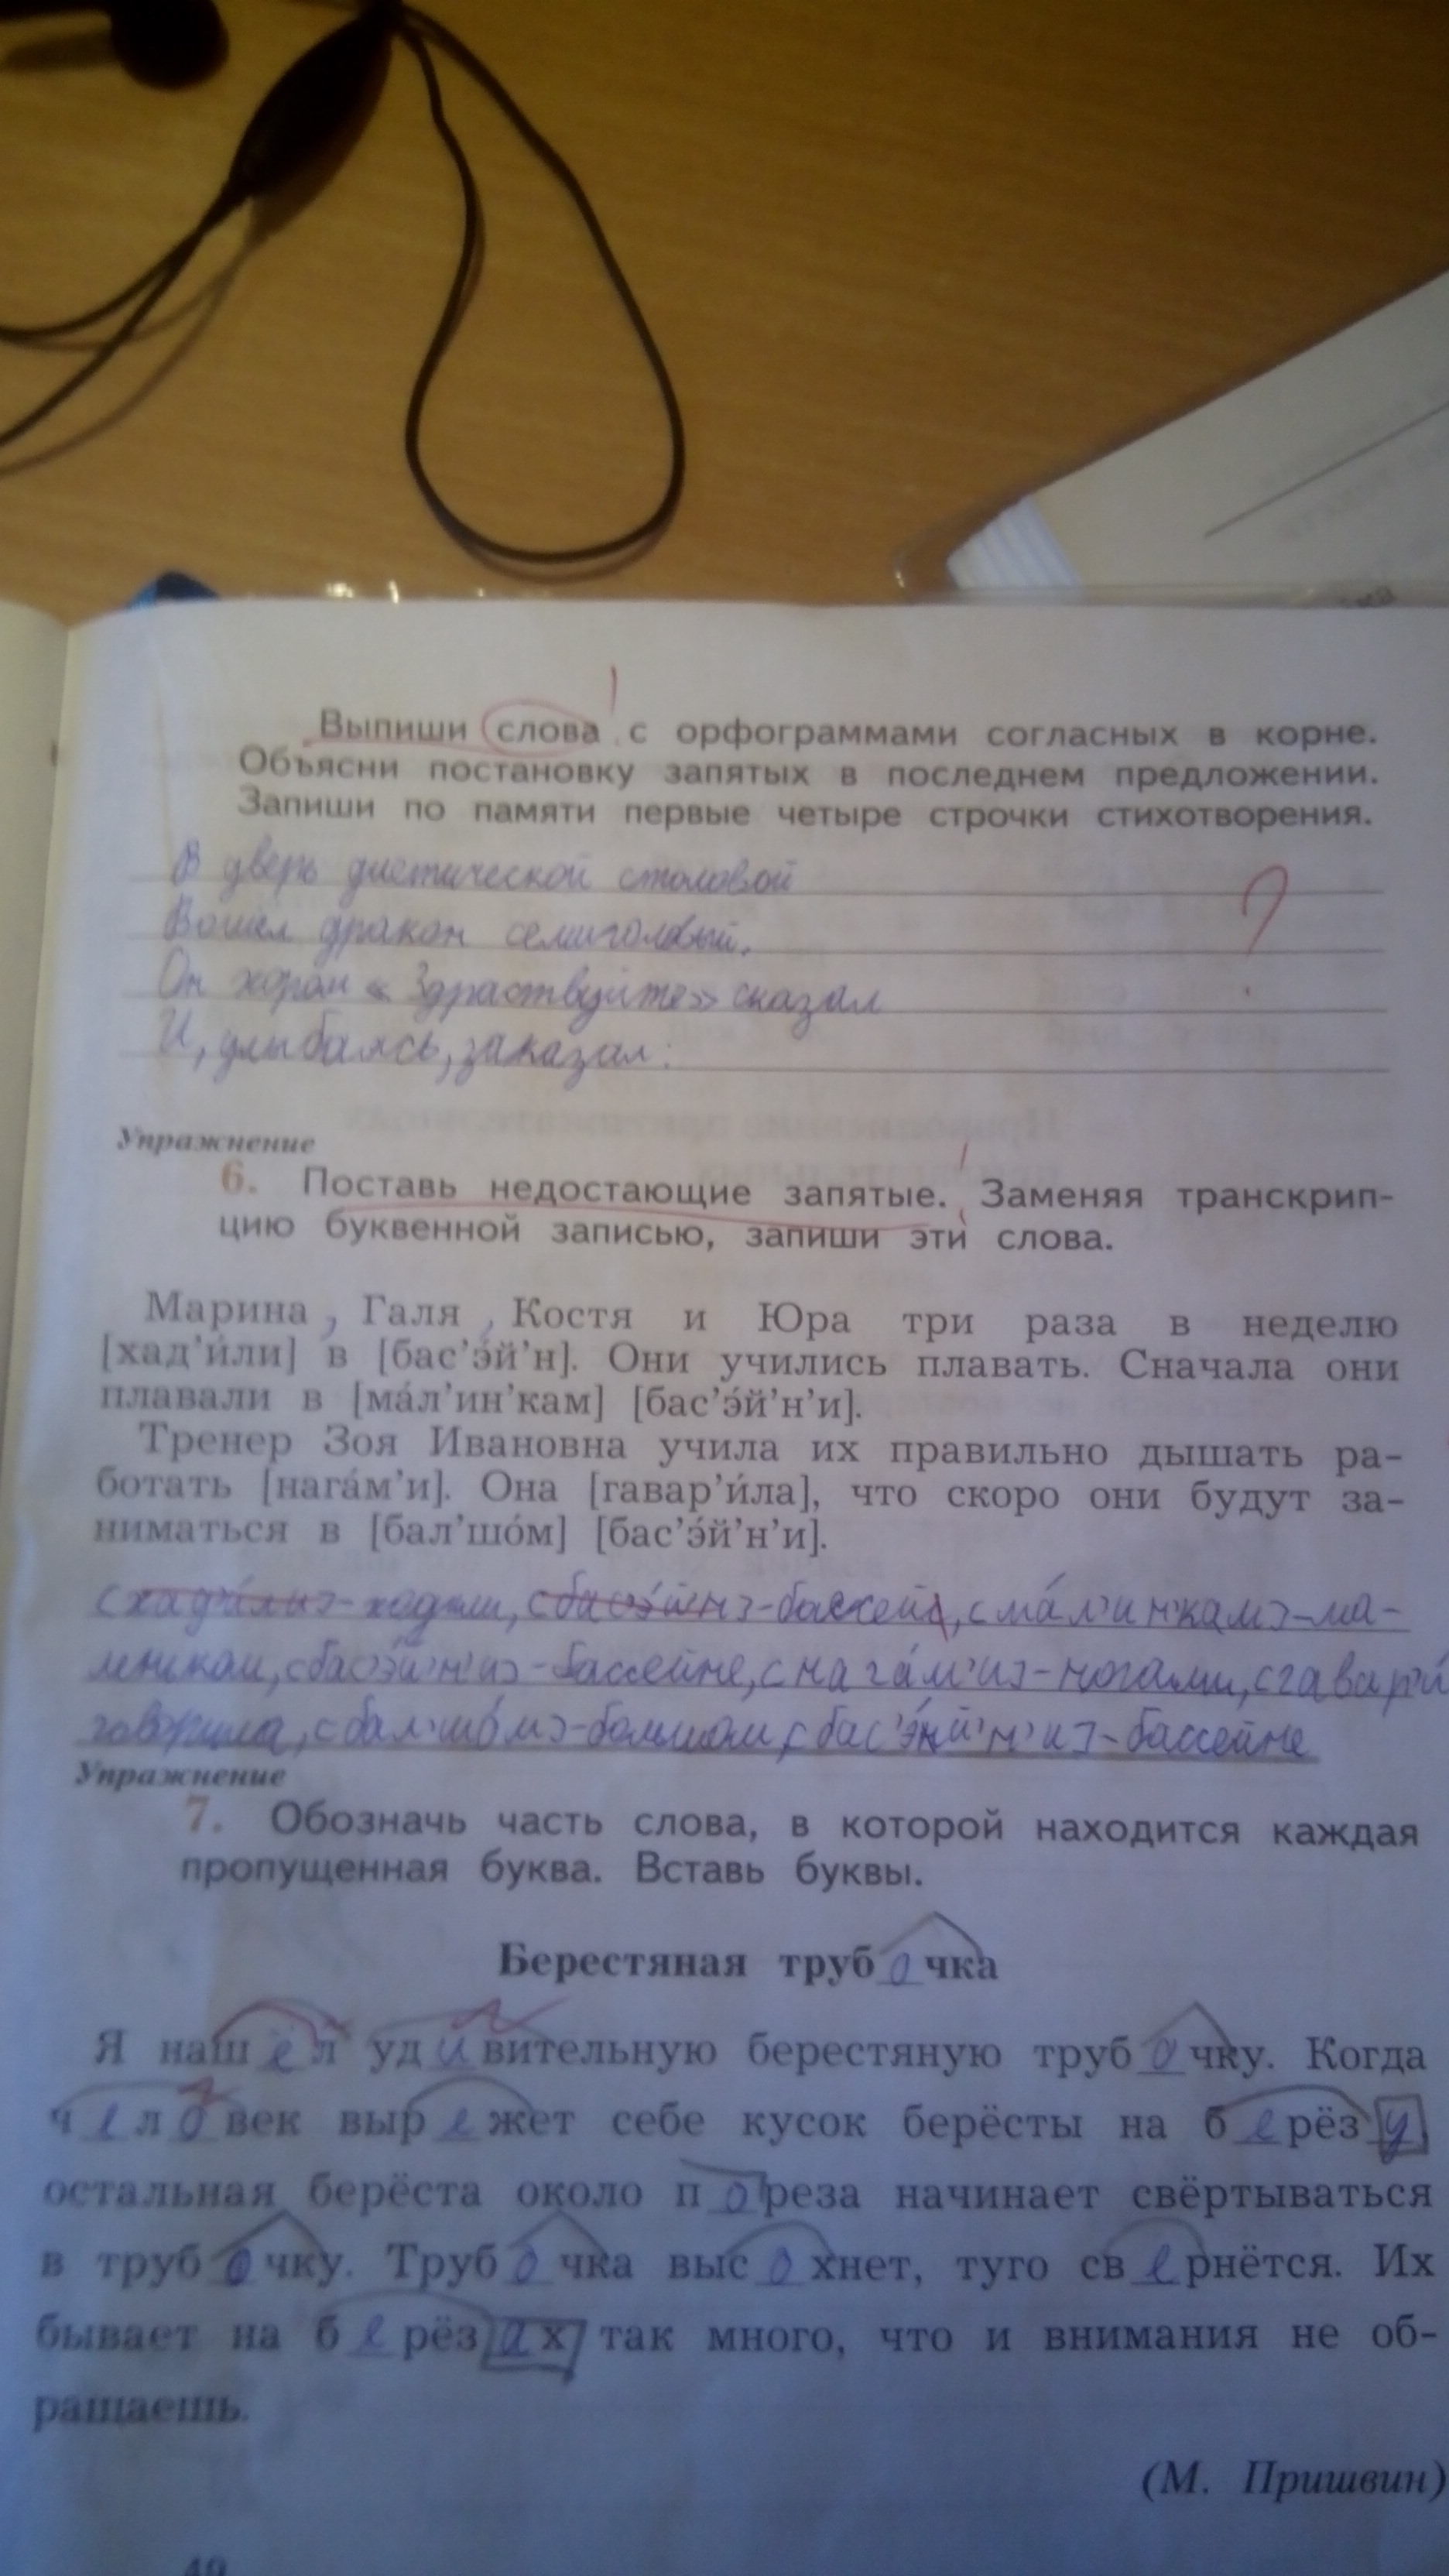 Выпиши слова с орфограммами согласных в корне.
Объясни постановку запятых в последнем предложении.
Запиши по памяти первые четыре строчки стихотворения.
В дверь диетической столовой
Вошёл дракон семиголовый.
Он хором « Здраствуйте» сказал
И, улыбаясь, заказал:
?
Упражнение
6. Поставь недостающие запятые. Заменяя транскрип-
цию буквенной записью, запиши эти слова.
Марина , Галя , Костя и Юра три раза в неделю
[хад’и́ли] в [бас’э́й’н]. Они учились плавать. Сначала они
плавали в [ма́л’ин’кам] [бас’э́й’н’и].
Тренер Зоя Ивановна учила их правильно дышать ра-
ботать [нага́м’и]. Она [гавар’и́ла], что скоро они будут за-
ниматься в [бал’шо́м] [бас’э́й’н’и].
[хад’и́ли]-ходили, [бас’э́й’н]-бассейн, [ма́л’ин’кам]-ма-
леньком, [бас’э́й’н’и]-бассейне, [нага́м’и]-ногами, [гавар’и́
говорила, [бал’шо́м]-большом, [бас’э́й’н’и]-бассейне
Упражнение
7. Обозначь часть слова, в которой находится каждая
пропущенная буква. Вставь буквы.
Берестяная трубочка
Я нашёл удивительную берестяную трубочку. Когда
человек вырежет себе кусок берёсты на берёзу
остальная берёста около пореза начинает свёртываться
в трубочку. Трубочка высохнет, туго свернётся. Их
бывает на берёзах так много, что и внимания не об-
ращаешь.
(М. Пришвин)
49